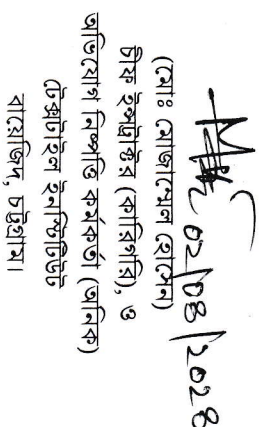 ০২/০৪/২০২৪
(মোঃ মোজাম্মেল হোসেন)
চীফ ইন্সট্রাক্টর (কারিগরি), ও
অভিযোগ নিষ্পত্তি কর্মকর্তা (অনিক)
টেক্সটাইল ইনস্টিটিউট
বায়েজিদ, চট্টগ্রাম।